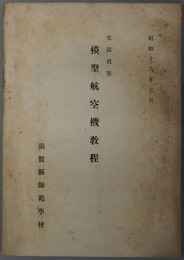 昭和十八年七月
文部省案
模型航空機教程
滋賀縣師範學校